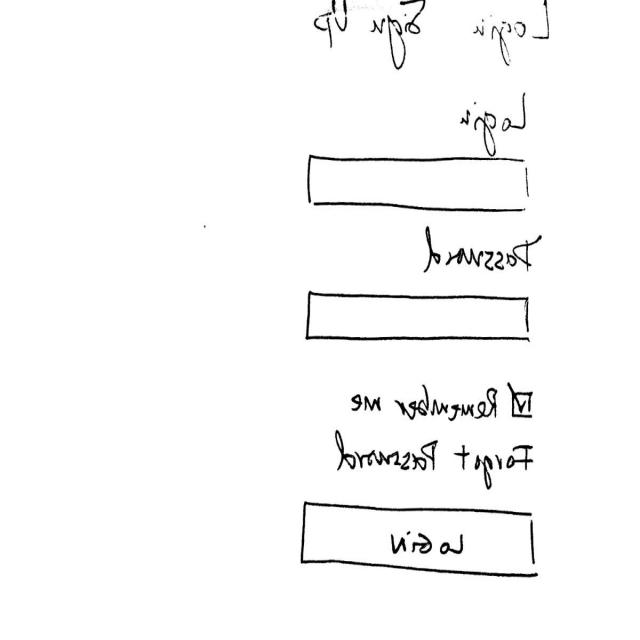 Login Sign Up
Login
Password
Remember me
Forgot Password
Login